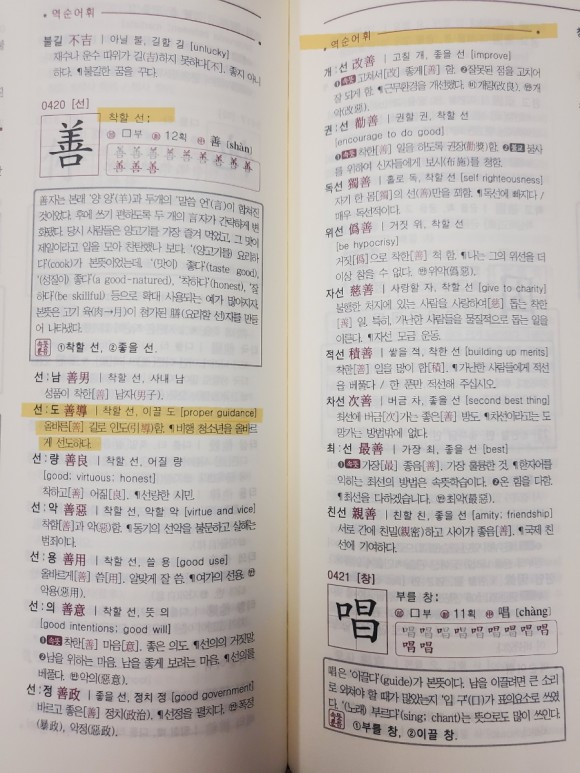 역순어휘
불길 不吉 | 아닐 불, 길할 길 [unlucky]
재수나 운수 따위가 길(吉)하지 못하다[不]. 좋지 아니
하다. ¶불길한 꿈을 꾸다.
0420 [선]
善
착할 선:
口부 12획 善 (shàn)
善 善 善 善 善 善 善 善
善 善 善
善자는 본래 '양 양'(羊)과 두개의 '말씀 언'(言)이 합쳐진
것이었다. 후에 쓰기 편하도록 두 개의 言자가 간략하게 변
화됐다. 당시 사람들은 양고기를 가장 즐겨 먹었고, 그 맛이
제일이라고 입을 모아 찬탄했나 보다. '(양고기를) 요리하
다'(cook)가 본뜻이었는데, '(맛이) 좋다'(taste good),
'(성질이) 좋다'(a good-natured), '착하다'(honest), '잘
하다'(be skillful) 등으로 확대 사용되는 예가 많아지자,
본뜻은 고기 육(肉→月)이 첨가된 膳(요리할 선)자를 만들
어 나타냈다.
속뜻훈음 ①착할 선, ②좋을 선.
선:남 善男 | 착할 선, 사내 남
성품이 착한[善] 남자(男子).
선:도 善導 | 착할 선, 이끌 도 [proper guidance]
올바른[善] 길로 인도(引導)함. ¶비행 청소년을 올바르
게 선도하다.
선:량 善良 | 착할 선, 어질 량
[good; virtuous; honest]
착하고[善] 어질[良]. ¶선량한 시민.
선:악 善惡 | 착할 선, 악할 악 [virtue and vice]
착함[善]과 악(惡)함. ¶동기의 선악을 불문하고 살해는
범죄이다.
선:용 善用 | 착할 선, 쓸 용 [good use]
올바르게[善] 씀[用]. 알맞게 잘 씀. ¶여가의 선용.
악용(惡用).
선:의 善意 | 착할 선, 뜻 의
[good intentions; good will]
❶속뜻 착한[善] 마음[意]. 좋은 의도. ¶선의의 거짓말.
❷남을 위하는 마음. 남을 좋게 보려는 마음. ¶선의를
베풀다. 악의(惡意).
선:정 善政 | 좋을 선, 정치 정 [good government]
바르고 좋은[善] 정치(政治). ¶선정을 펼치다. 폭정
(暴政), 악정(惡政).
역순어휘
개:선 改善 | 고칠 개, 좋을 선 [improve]
❶속뜻 고쳐서[改] 좋게[善] 함. ❷잘못된 점을 고치어
잘 되게 함. ¶근무환경을 개선했다. 개량(改良). 개
악(改惡).
권:선 勸善 | 권할 권, 착할 선
[encourage to do good]
❶속뜻 착한[善] 일을 하도록 권장(勸奬)함. ❷불교 불사
를 위하여 신자들에게 보시(布施)를 청함.
독선 獨善 | 홀로 독, 착할 선 [self righteousness]
자기 한 몸[獨]의 선(善)만을 꾀함. ¶독선에 빠지다 /
매우 독선적이다.
위선 僞善 | 거짓 위, 착할 선
[be hypocrisy]
거짓[僞]으로 착한[善] 척 함. ¶나는 그의 위선을 더
이상 참을 수 없다. 위악(僞惡).
자선 慈善 | 사랑할 자, 착할 선 [give to charity]
불행한 처지에 있는 사람을 사랑하여[慈] 돕는 착한
[善] 일, 특히, 가난한 사람들을 물질적으로 돕는 일을
이른다. ¶자선 모금 운동.
적선 積善 | 쌓을 적, 착한 선 [building up merits]
착한[善] 일을 많이 한[積]. ¶가난한 사람들에게 적선
을 베풀다 / 한 푼만 적선해 주십시오.
차선 次善 | 버금 차, 좋을 선 [second best thing]
최선에 버금[次]가는 좋은[善] 방도. ¶차선이라고는 도
망가는 방법밖에 없다.
최:선 最善 | 가장 최, 좋을 선 [best]
❶속뜻 가장[最] 좋음[善]. 가장 훌륭한 것. ¶한자어를
익히는 최선의 방법은 속뜻학습이다. ❷온 힘을 다함.
¶최선을 다하겠습니다. 최악(最惡).
친선 親善 | 친할 친, 좋을 선 [amity; friendship]
서로 간에 친밀(親密)하고 사이가 좋음[善]. ¶국제 친
선에 기여하다.
0421 [창]
唱
부를 창:
口부 11획 唱 (chàng)
唱 唱 唱 唱 唱 唱 唱 唱 唱
唱 唱
唱은 '이끌다'(guide)가 본뜻이다. 남을 이끌려면 큰 소리
로 외쳐야 할 때가 많았는지 '입 구'(口)가 표의요소로 쓰였
다. '(노래) 부르다'(sing; chant)는 뜻으로도 많이 쓰인다.
속뜻훈음 ①부를 창, ②이끌 창.